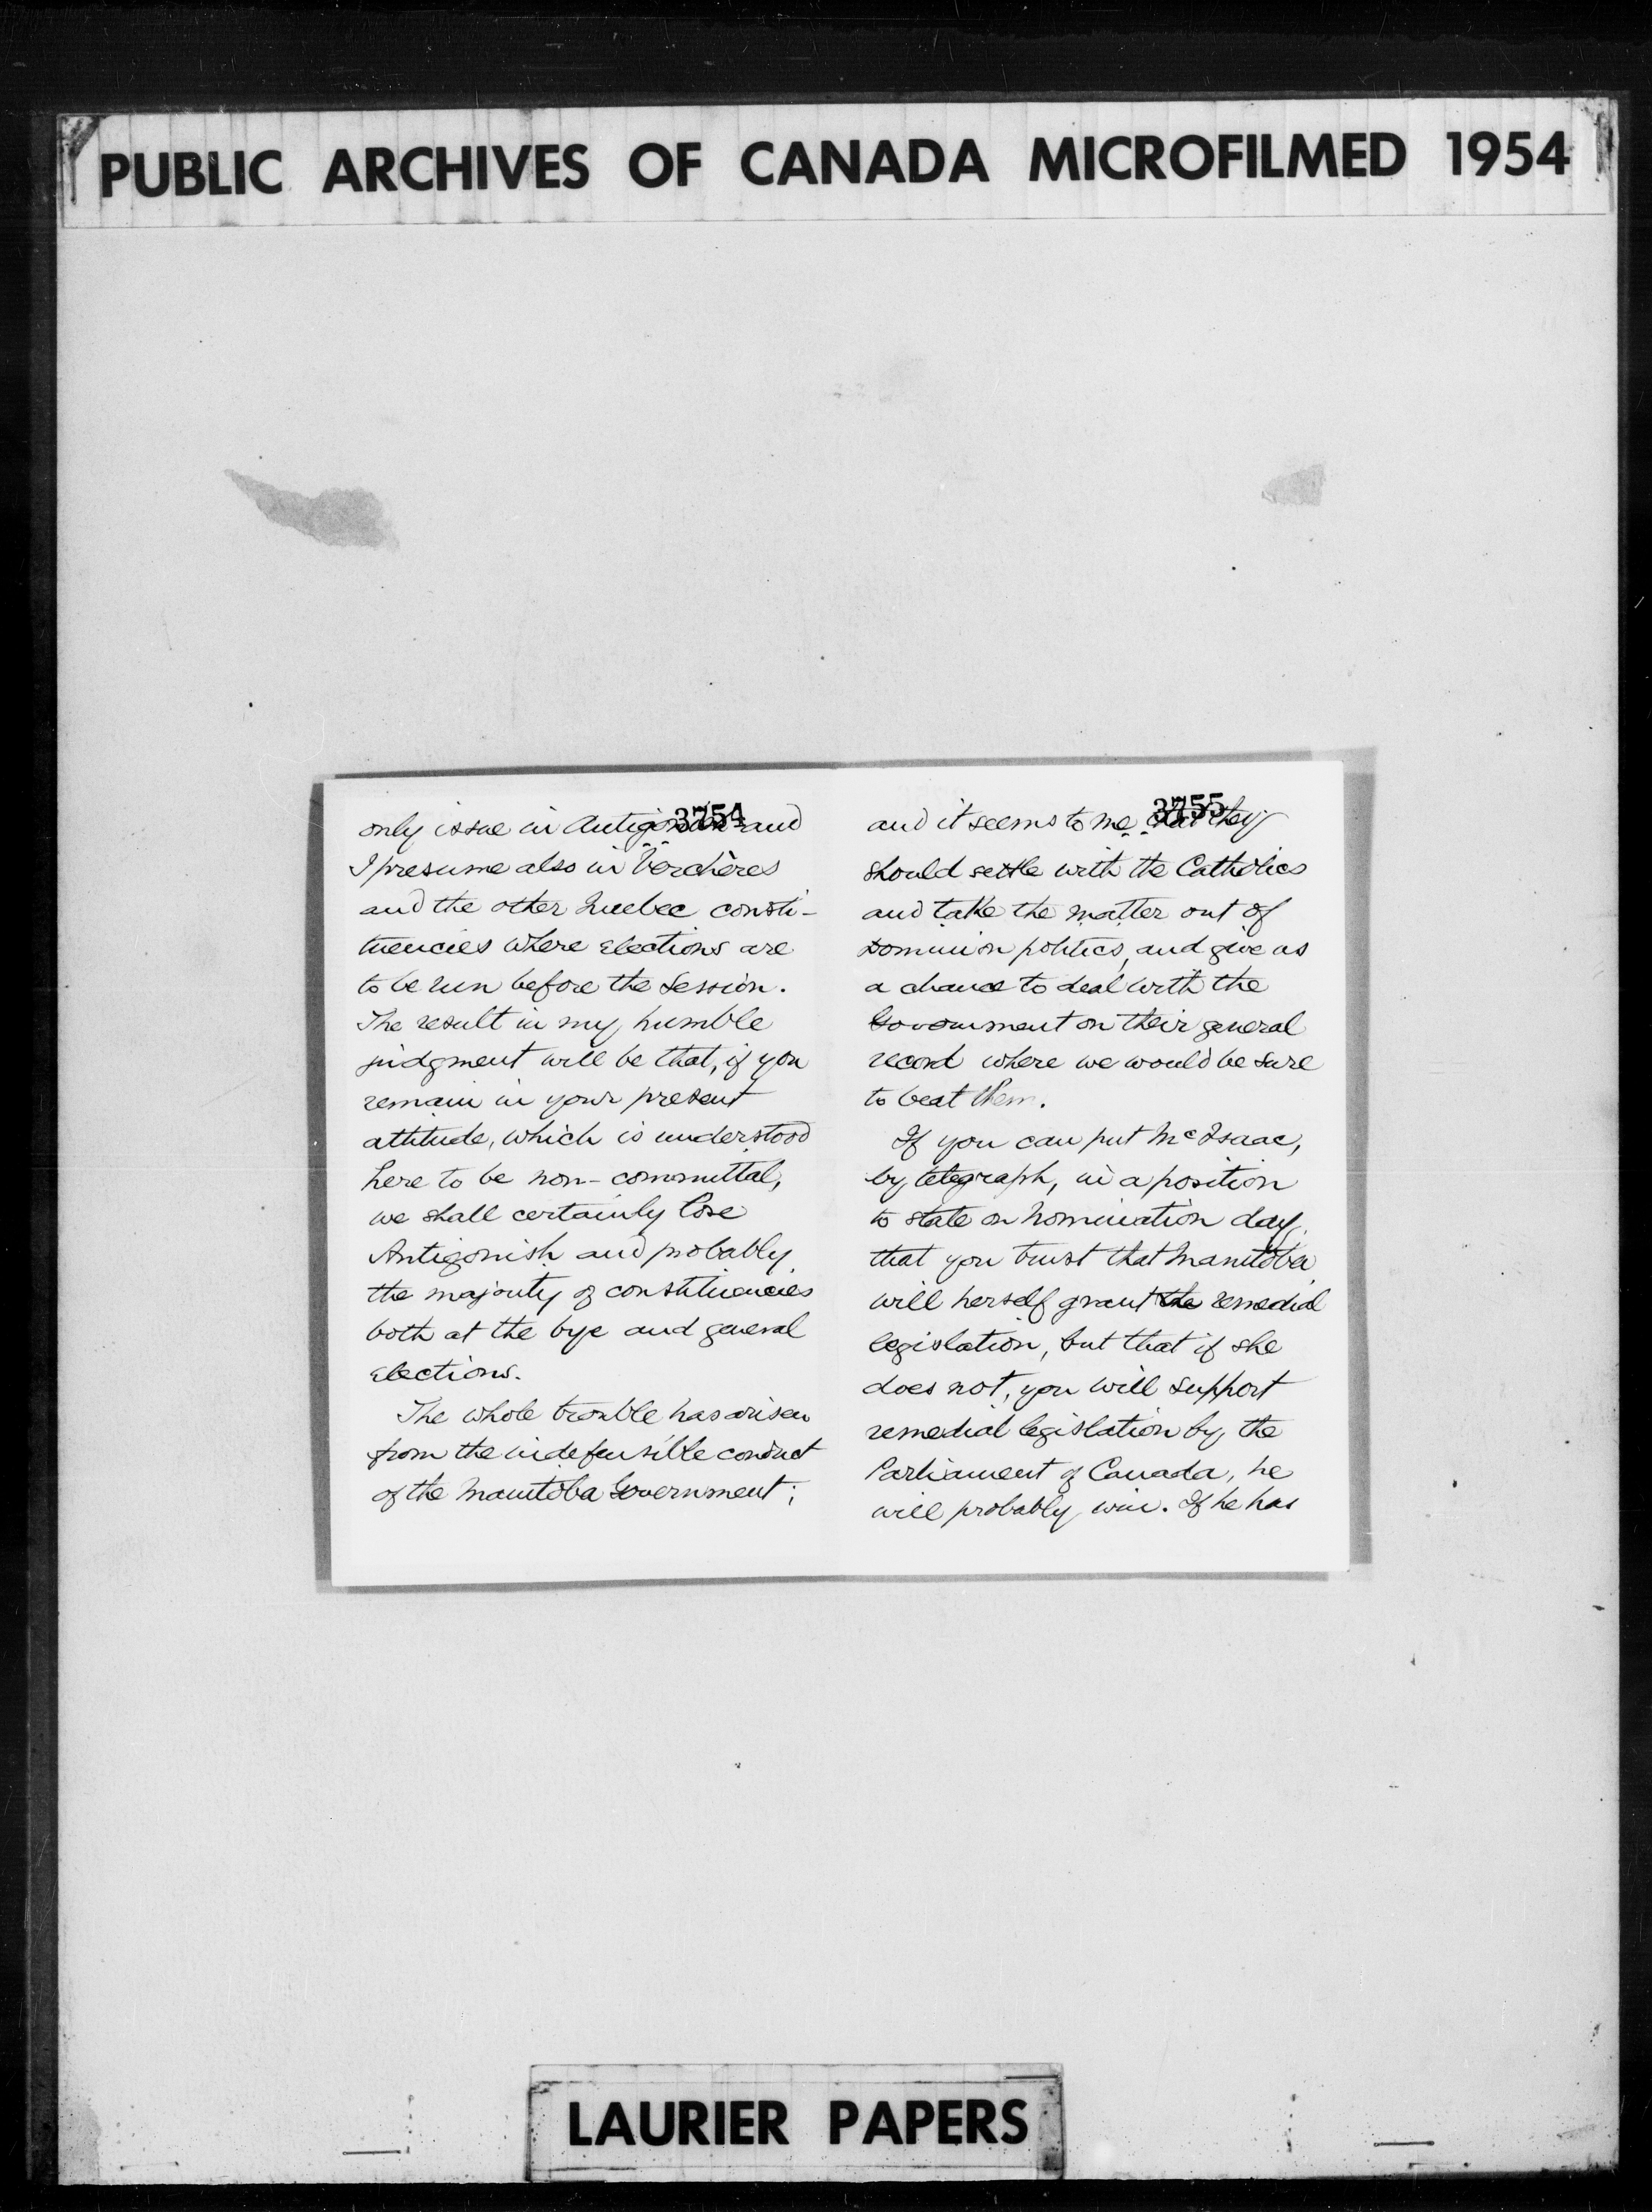 PUBLIC ARCHIVES OF CANADA MICROFILMED 1954
3754
only issue in Antigonish and
I presume also in Verchères
and the other Quebec consti-
tuencies where elections are
to be run before the session.
The result in my humble
judgment will be that, if you
remain in your present
attitude, which is understood
here to be non-committal,
we shall certainly lose
Antigonish and probably
the majority of constituencies
both at the bye and general
elections.
The whole trouble has arisen
from the indefensible conduct
of the Manitoba Government;
3755
and it seems to me that they
should settle with the Catholics
and take the matter out of
Dominion politics, and give us
a chance to deal with the
Government on their general
record where we would be sure
to beat them.
If you can put McIsaac,
by telegraph, in a position
to state on nomination day,
that you trust that Manitoba
will herself grant the remedial
legislation, but that if she
does not, you will support
remedial legislation by the
Parliament of Canada, he
will probably win. If he has
LAURIER PAPERS